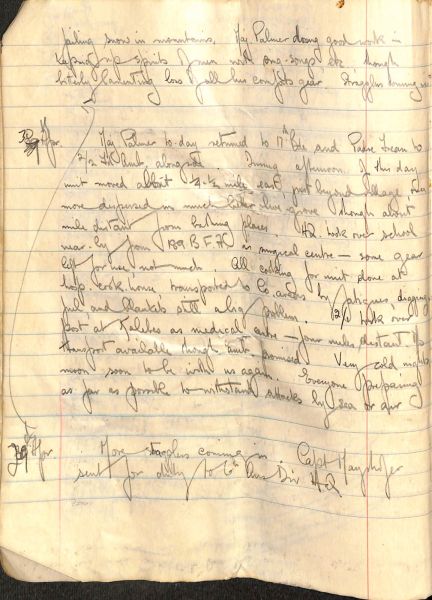 falling snow in mountains. Maj Palmer doing good work in
keeping up spirits of men with sing-songs etc though
bitterly lamenting loss of all his comforts gear. Stragglers coming in
30 Apr Maj Palmer to-day returned to 7th Bde and Padre to
2/2 Fd Amb, alongside During afternoon of this day
unit moved about ¼-½ mile east, just beyond village
more dispersed in much better olive grove though about
mile distant from bathing places. HQ took over school
near by from 189 B.F.A. as surgical centre — some gear
left for use, not much. All cooking for unit done at
hosp. cook house transported to Co. areas by fatigues, digging
fuel and blankets still a big problem. took over
post at Kalebes as medical centre — four miles distant
transport available though unit promised. Very cold nights
moon soon to be with us again. Everyone preparing
as far as possible to withstand attacks by sea or air
29 Apr More stragglers coming in. Capt
sent for duty to 6th Aus Div HQ